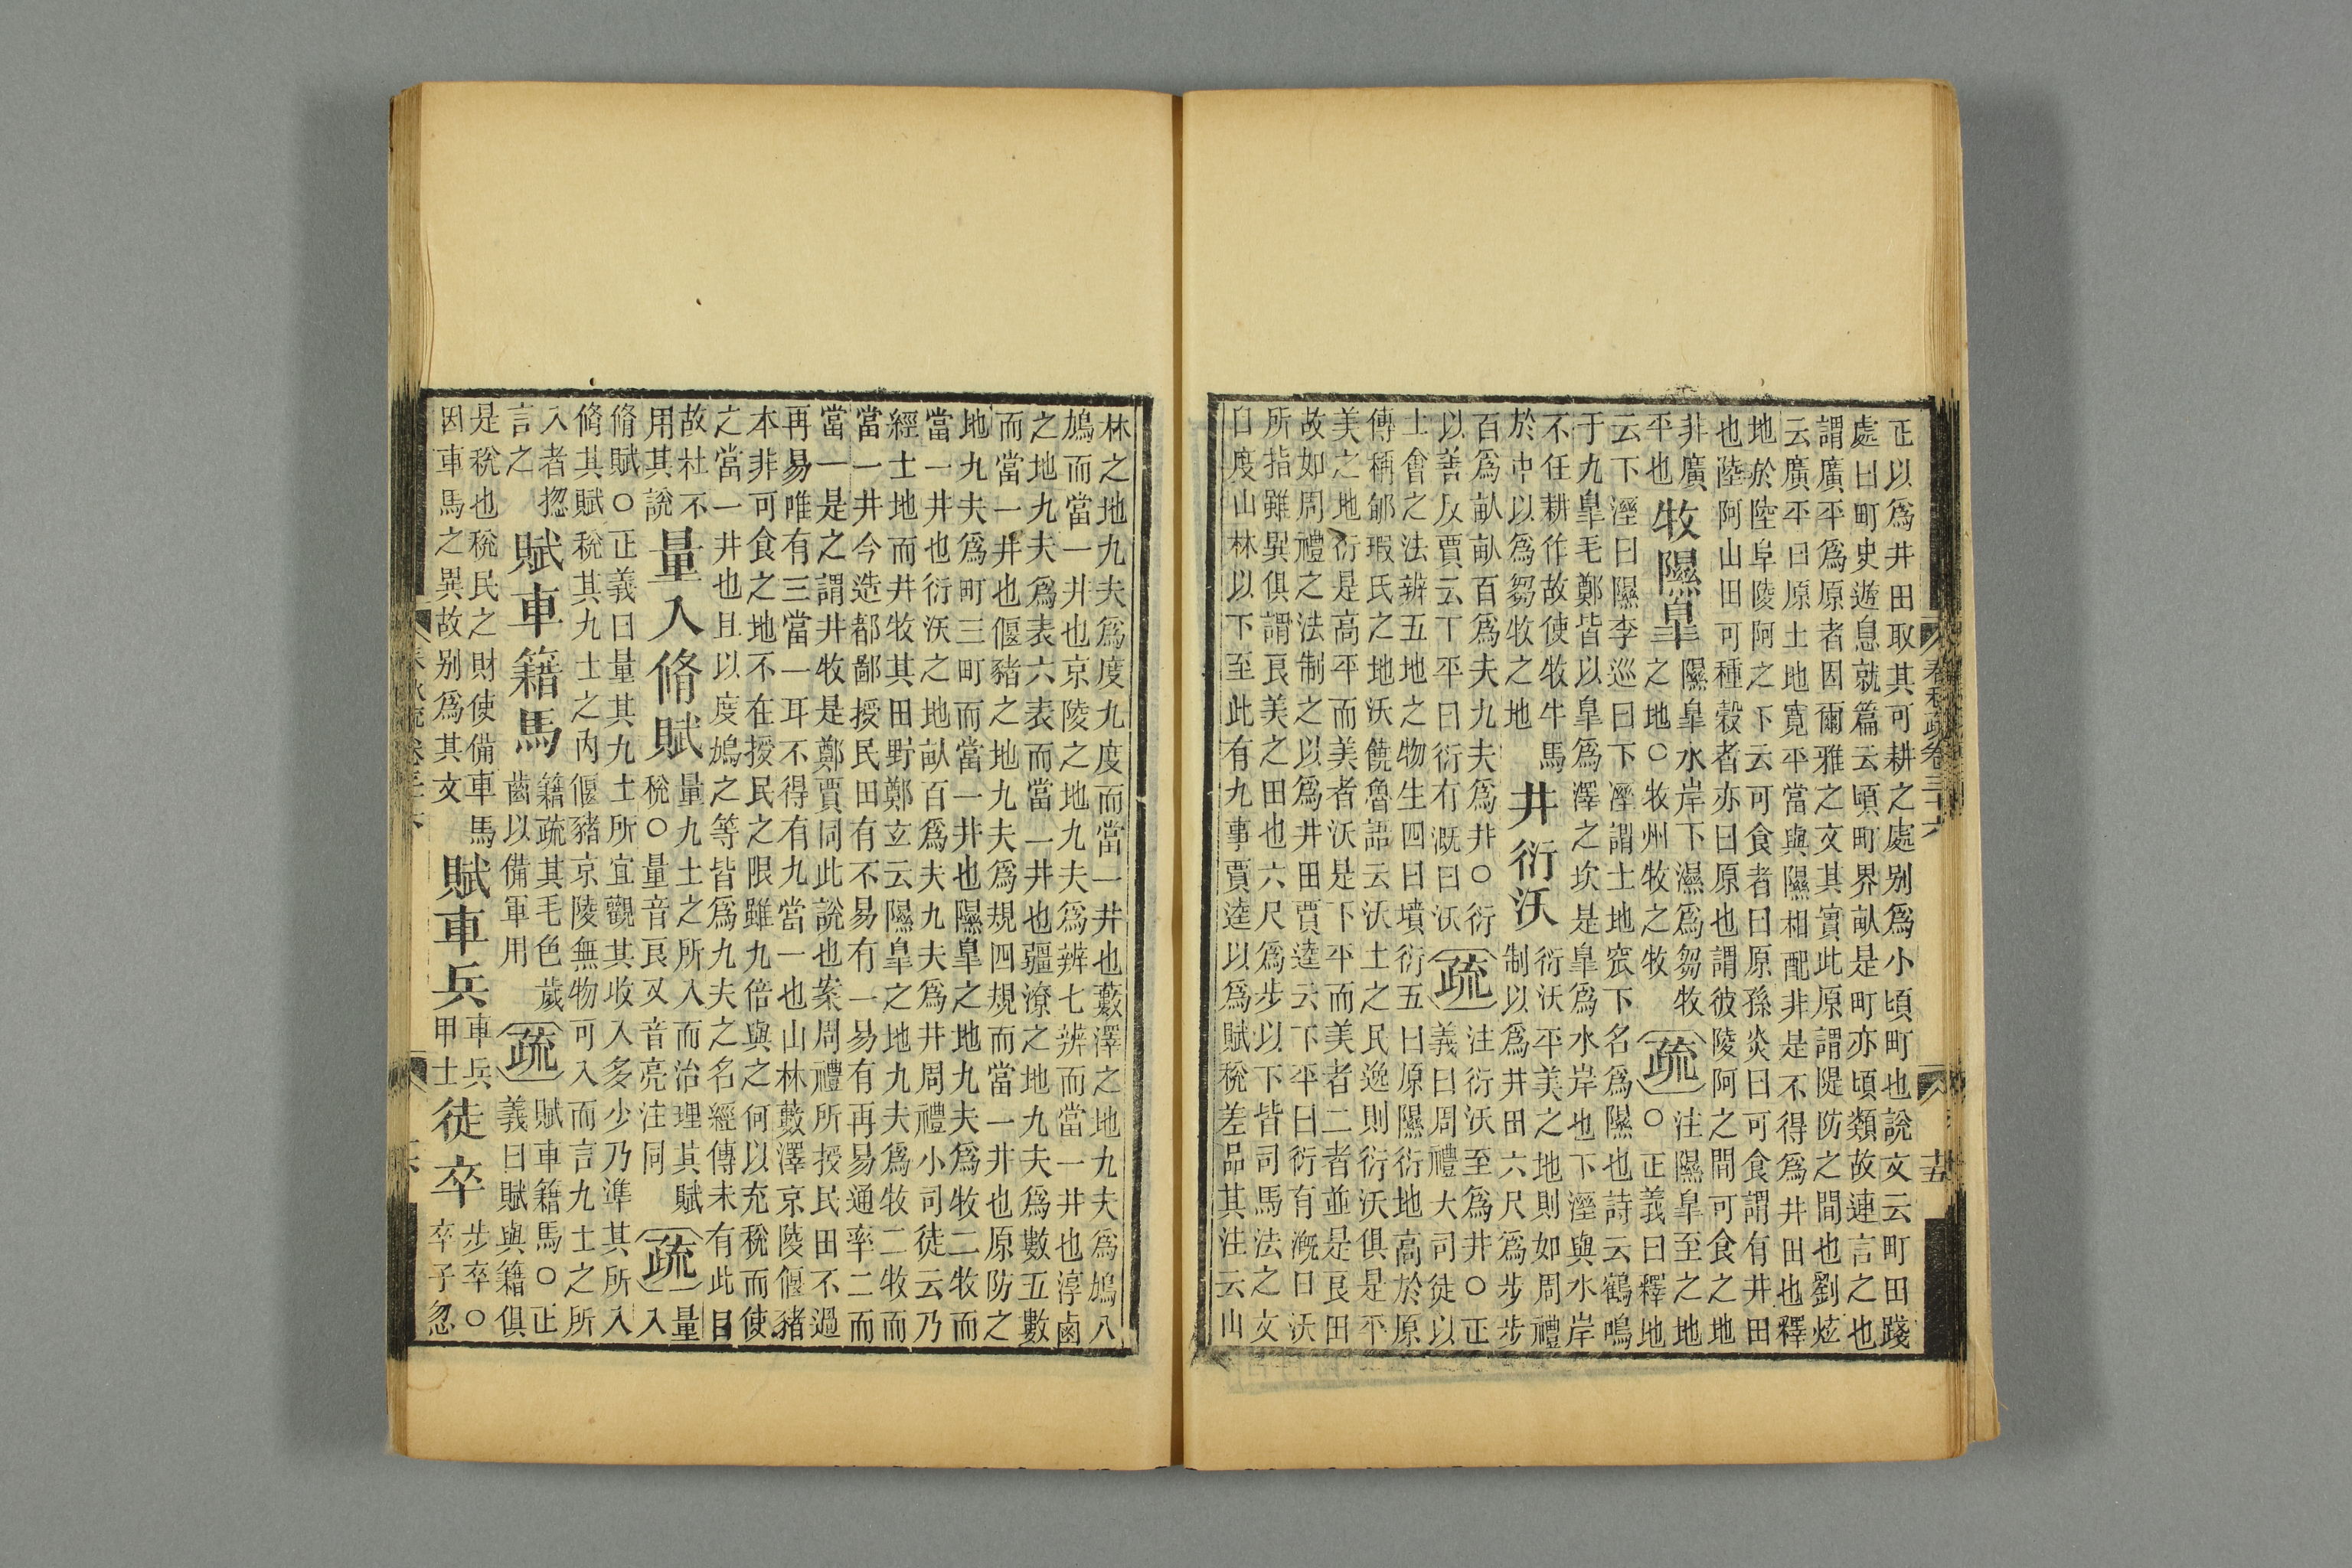 正以爲井田取其可耕之處別爲小頃町也說文云町田踐
處曰町史遊急就篇云頃町界畝是町亦頃類故連言之也
謂廣平爲原者因爾雅之文其實此原謂隄防之間也劉炫
云廣平曰原土地寬平當與隰相配非是不得爲井田也釋
地於陸阜陵阿之下云可食者曰原孫炎曰可食謂有井田
也陸阿山田可種穀者亦曰原也謂彼陵阿之間可食之地
非廣
平也
牧隰皐
隰皐水岸下濕爲芻牧
之地○牧州牧之牧
疏
注隰皐至之地
○正義曰釋地
云下溼曰隰李巡曰下溼謂土地窊下名爲隰也詩云鶴鳴
于九皐毛鄭皆以皐爲澤之坎是皐爲水岸也下溼與水岸
不任耕作故使牧牛馬
於中以爲芻牧之地
井衍沃
衍沃平美之地則如周禮
制以爲井田六尺爲步步
百爲畝畝百爲夫九夫爲井○衍
以善反賈云下平曰衍有溉曰沃
疏
注衍沃至爲井○正
義曰周禮大司徒以
土會之法辨五地之物生四曰墳衍五曰原隰衍地高於原
傳稱郇瑕氏之地沃饒魯語云沃土之民逸則衍沃俱是平
美之地衍是高平而美者沃是下平而美者二者並是良田
故如周禮之法制之以爲井田賈逵云下平曰衍有漑曰沃
所指雖異俱謂良美之田也六尺爲步以下皆司馬法之文
自度山林以下至此有九事賈逵以爲賦稅差品其注云山
春秋疏卷三十六
林之地九夫爲度九度而當一井也藪澤之地九夫爲鳩八
鳩而當一井也京陵之地九夫爲辨七辨而當一井也淳鹵
之地九夫爲表六表而當一井也疆潦之地九夫爲數五數
而當一井也偃豬之地九夫爲規四規而當一井也原防之
地九夫爲町三町而當一井也隰皐之地九夫爲牧二牧而
當一井也衍沃之地畝百爲夫九夫爲井周禮小司徒云乃
經土地而井牧其田野鄭玄云隰皐之地九夫爲牧二牧而
當一井今造都鄙授民田有不易有一易有再易通率二而
當一是之謂井牧是鄭賈同此說也案周禮所授民田不過
再易唯有三當一耳不得有九當一也山林藪澤京陵偃豬
本非可食之地不在授民之限雖九倍與之何以充稅而使
之當一井也且以度鳩之等皆爲九夫之名經傳未有此目
故社不
用其說
量入脩賦
量九土之所入而治理其賦
稅○量音良又音亮注同
疏
量
入
脩賦○正義曰量其九土所宜觀其收入多少乃準其所入
脩其賦稅其九土之內偃豬京陵無物可入而言九土之所
入者揔
言之
賦車籍馬
籍疏其毛色歲
齒以備軍用
疏
賦車籍馬○正
義曰賦與籍俱
是稅也稅民之財使備車馬
因車馬之異故別爲其文
賦車兵
車兵
甲士
徒卒
步卒○
卒子忽